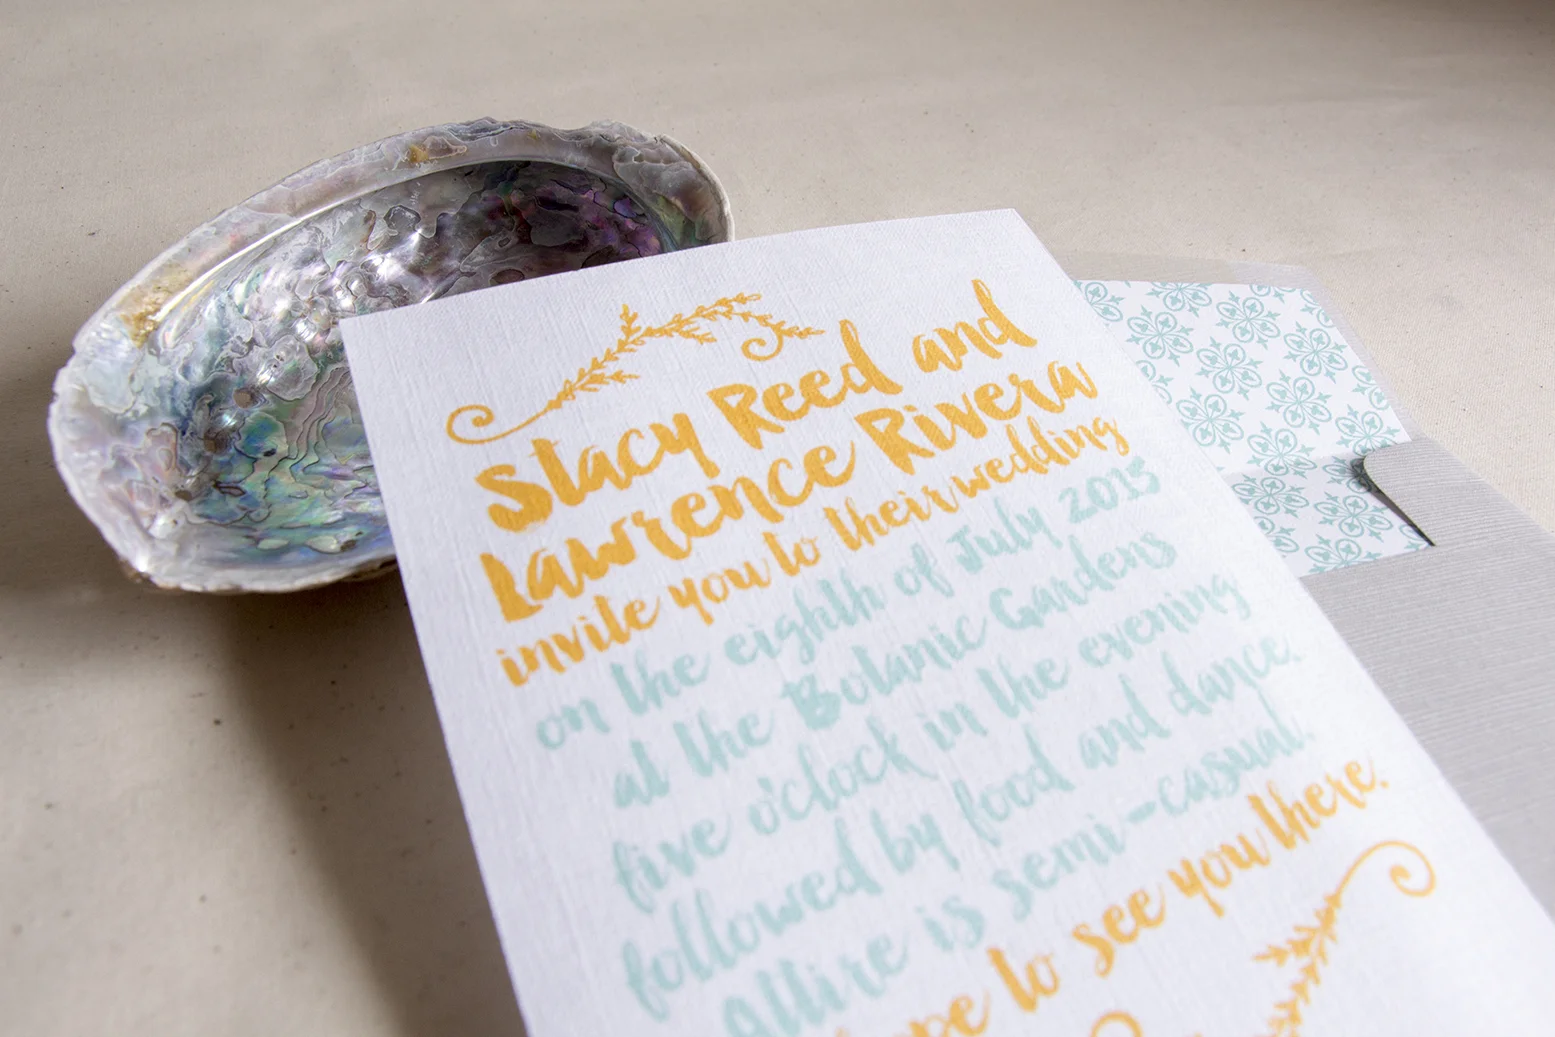 Stacy Reed and
Lawrence Rivera
invite you to their wedding
on the eighth of July 2015
at the Botanic Gardens
five o'clock in the evening
followed by food and dance.
Attire is semi-casual.
to see you there.